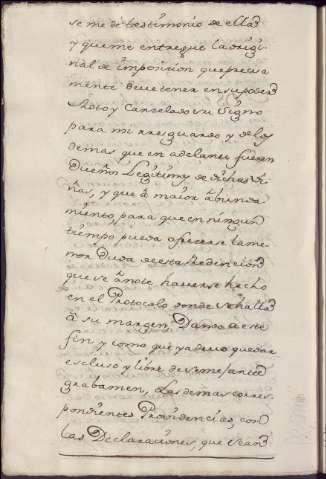 se me dè testimonio de ellas
y que me entregue la origi
nal de imposicion que precisa
mente deve tener en su poder
Roto y Cancelado su Signo
para mi rresguardo y de los
demas que en adelante fueren
Dueños Legitimos de dichas Vi
ñas, y que à maior àbunda
miento para que en ningun
tiempo pueda ofrecerse la me
nor Duda de esta Redencion
que se ànote haverse hecho
en el Protocolo donde se halla
à su margen, Dando à este
fin y como que ya devo quedar
escluso y libre de semejante
grabamen, Las demas corres
pondientes Providencias, con
las Declaraciones, que sean